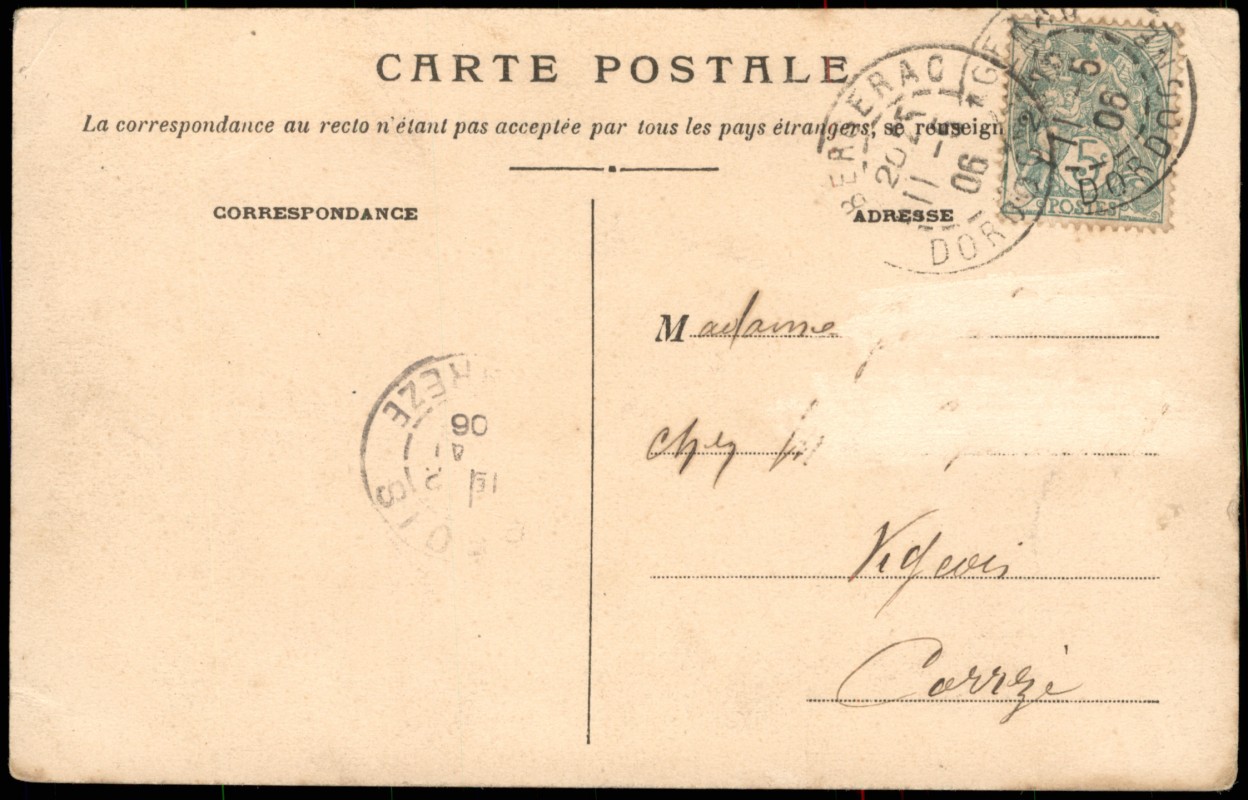 CARTE POSTALE
La correspondance au recto n'étant pas acceptée par tous les pays étrangers, se renseign
CORRESPONDANCE
ADRESSE
BERGERAC
20 25
11 - 5
06
DORDOGNE
5
06
DORDOGNE
5
POSTES
Madame
chez M
Vigeois
Corrèze
RÈZE
06
4
OIS